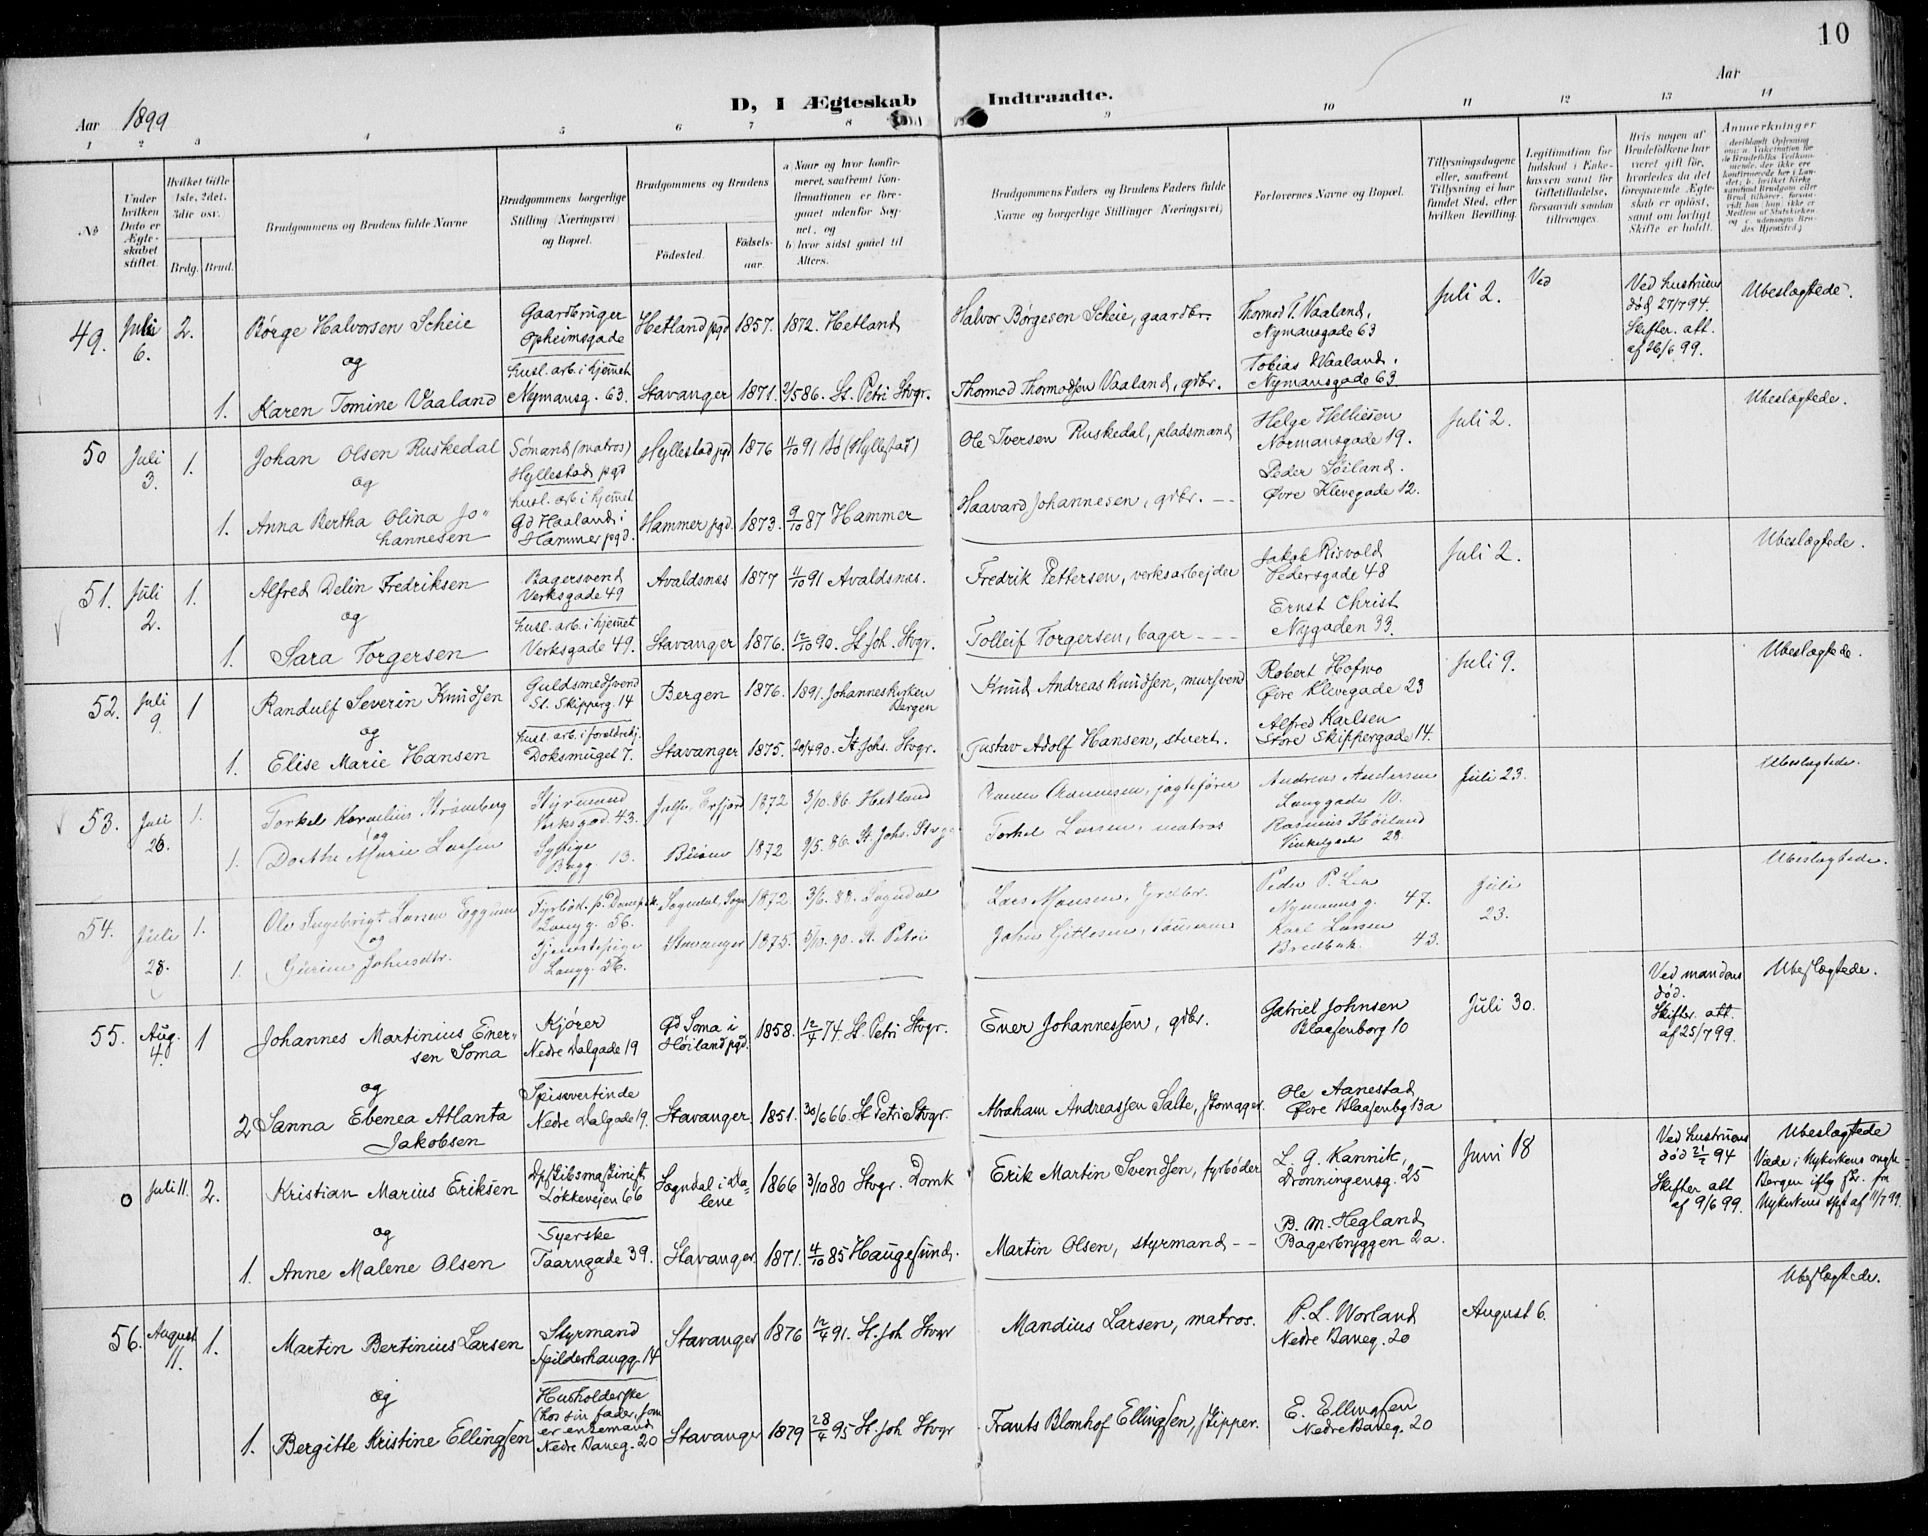 10
D, I Ægteskab Indtraadte.
Aar 1899
Aar
1 2 3 4 5 6 7 8 9 10 11 12 13 14
No
Under hvilken Dato er Ægteskabet stiftet.
Hvilket Gifte 1ste, 2det, 3die osv.
Brdg. Brud.
Brudgommens og Brudens fulde Navne
Brudgommens borgerlige Stilling (Næringsvei) og Bopæl.
Brudgommens og Brudens
Fødested.
Fødselsaar.
a Naar og hvor konfirmeret, saafremt Konfirmationen er foregaaet udenfor Sognet, og
b hvor sidst gaaet til Alters.
Brudgommens Faders og Brudens Faders fulde Navne og borgerlige Stillinger (Næringsvei)
Forlovernes Navne og Bopæl.
Tillysningsdagene eller, saafremt Tillysning ei har fundet Sted, efter hvilken Bevilling.
Legitimation for Indskud i Enkekassen samt for Giftetilladelse, forsaavidt saadan tiltrænges.
Hvis nogen af Brudefolkene har været gift før, hvorledes da det foregaaende Ægteskab er opløst, samt om lovligt Skifte er holdt.
Anmærkninger
49. Juli 6. 2. Børge Halvorsen Scheie Gaardbruger Opheimsgade Hetland pgd 1857. 1872. Hetland Halvor Børgesen Scheie, gaardbr. Thormod T. Vaaland, Nymansgade 63 Juli 2. Ved Ved hustruens død 27/7 94. Skifter. att. af 26/6 99. Ubeslægtede.
og
1. Karen Tomine Vaaland husl. arb. i hjemet Nymansg. 63. Stavanger 1871. 2/5 86. St. Petri Stvgr. Thormod Thormodsen Vaaland, gdbr. Tobias Vaaland, Nymansgade 63
50 Juli 3. 1. Johan Olsen Ruskedal Sømand (matros) Hyllestad pgd Hyllestad pgd 1876 4/10 91 Bø (Hyllestad) Ole Iversen Ruskedal, pladsmand Helge Helliesen Normansgade 19. Juli 2. Ubeslægtede.
og
1. Anna Bertha Olina Johannesen husl. arb i hjemet gd Haaland i Hammer pgd. Hammer pgd. 1873. 9/10 87 Hammer Haavard Johannesen, gdbr. Peder Søiland. Øvre Klevegade 12.
51. Juli 2. 1. Alfred Delin Fredriksen Bagersvend Verksgade 49 Avaldsnes 1877 4/10 91 Avaldsnes. Fredrik Pettersen, verksarbejder Jakob Risvold Pedersgade 48 Juli 2. Ubeslægtede.
og
1. Sara Torgersen husl. arb. i hjemet Verksgade 49. Stavanger 1876. 12/10 90. St. Joh. Stvgr. Tolleif Torgersen, bager Ernst Christ Nygaden 33.
52. Juli 9. 1 Randulf Severin Knudsen Guldsmedsvend St. Skipperg. 14 Bergen 1876. 1891. Johanneskirken Bergen Knud Andreas Knudsen, mursvend Robert Hofmo Øvre Klevegade 23 Juli 9. Ubeslægtede.
og
1. Elise Marie Hansen husl. arb. i foreldrehj. Doksmuget 7. Stavanger 1875. 20/4 90. St. Johs. Stvgr. Gustav Adolf Hansen, stuert. Alfred Karlsen Store Skippergade 14.
53. Juli 26. 1. Torkel Kornelius Strømberg Styrmand Verksgad. 43. Erfjord 1872 3/10. 86. Hetland jagtefører Andreas Andersen Langgade 10. Juli 23. Ubeslægtede.
og
1. Dorthe Marie Larsen Sypige Bygg 13. 1872 9/5. 86. St. Johs. Stvgr. Torkel Larsen, matros Rasmus Høiland Vinkelgade 28.
54. Juli 28. 1. Ole Ingebrigt Larsen Eggum Fyrbød. p. Dampsk. Langg. 56. Sogndal, Sogn 1872. 3/6. 88. Sogndal Lars Monsen, Grdbr. Peder P. Lea Nymansg. 47. Juli 23. Ubeslægtede.
og
1. Gurine Johnsdtr. Tjenestepige Langg. 56. Stavanger 1875. 5/10. 90. St. Petri John Gitlesen, tømmerm Karl Larsen Bredbak. 43.
55. Aug. 4. 1 Johannes Martinius Enersen Soma Kjører Nedre Dalgade 19 Gd Soma i Høiland pgd. 1858. 12/4 74. St. Petri Stvgr. Ener Johannessen, gdbr. Gabriel Johnsen Blaasenborg 10 Juli 30. Ved mandens død. Skifter. att. af 25/7 99. Ubeslægtede.
og
2 Sanna Ebenea Atlanta Jakobsen Spisevertinde Nedre Dalgade 19. Stavanger. 1851. 30/6 66. St Petri Stvgr. Abraham Andreassen Salte, skomager. Ole Aanestad Øvre Blaasenbg 13a
0 Juli 11. 2. Kristian Marius Eriksen Dpskibsmaskinist Løkkeveien 66 Sogndal i Dalene 1866 3/10 80 Stvgr. Domk Erik Martin Svendsen, fyrbøder L. G. Kannik, Dronningensg. 25 Juni 18 Ved hustruens død 2/2 94 Skifter att af 9/6 99. Ubeslægtede Viede i Nykirkens Bergen iflg fra Nykirkens af 11/7 99.
og
1. Anne Malene Olsen Syerske Taarngade 39. Stavanger. 1871. 4/10 85 Haugesund. Martin Olsen, styrmand B. M. Hegland Bagerbryggen 2a.
56. August 11. 1. Martin Bertinius Larsen Styrmand Spilderhaugg. 14 Stavanger 1876 12/4 91. St. Joh Stvgr Mandius Larsen, matros. P. L. Worland Nedre Baneg. 20 August 6. Ubeslægtede.
og
1. Bergitte Kristine Ellingsen Husholderske (hos sin fader, som er enkemand) Nedre Baneg. 20 Stavanger 1879 28/4 95 St. Joh Stvgr Frants Blomhof Ellingsen, skipper. E. Ellingsen Nedre Baneg. 20